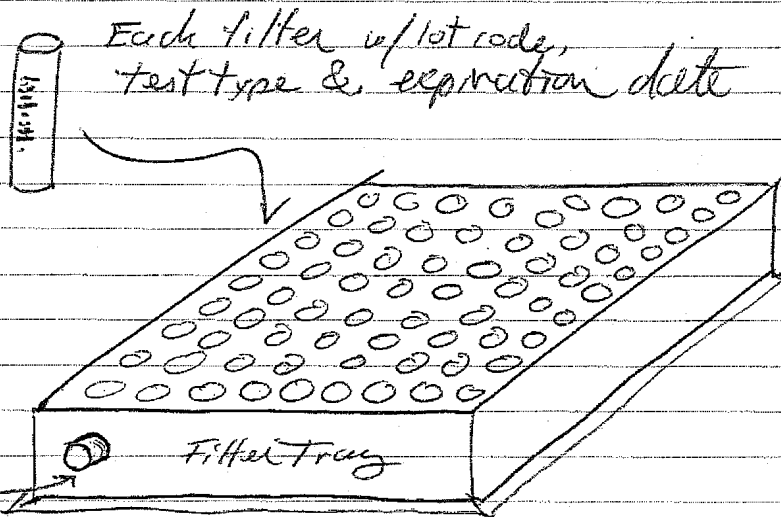 Each filter w/ lot code,
test type & expiration date
Filter Tray